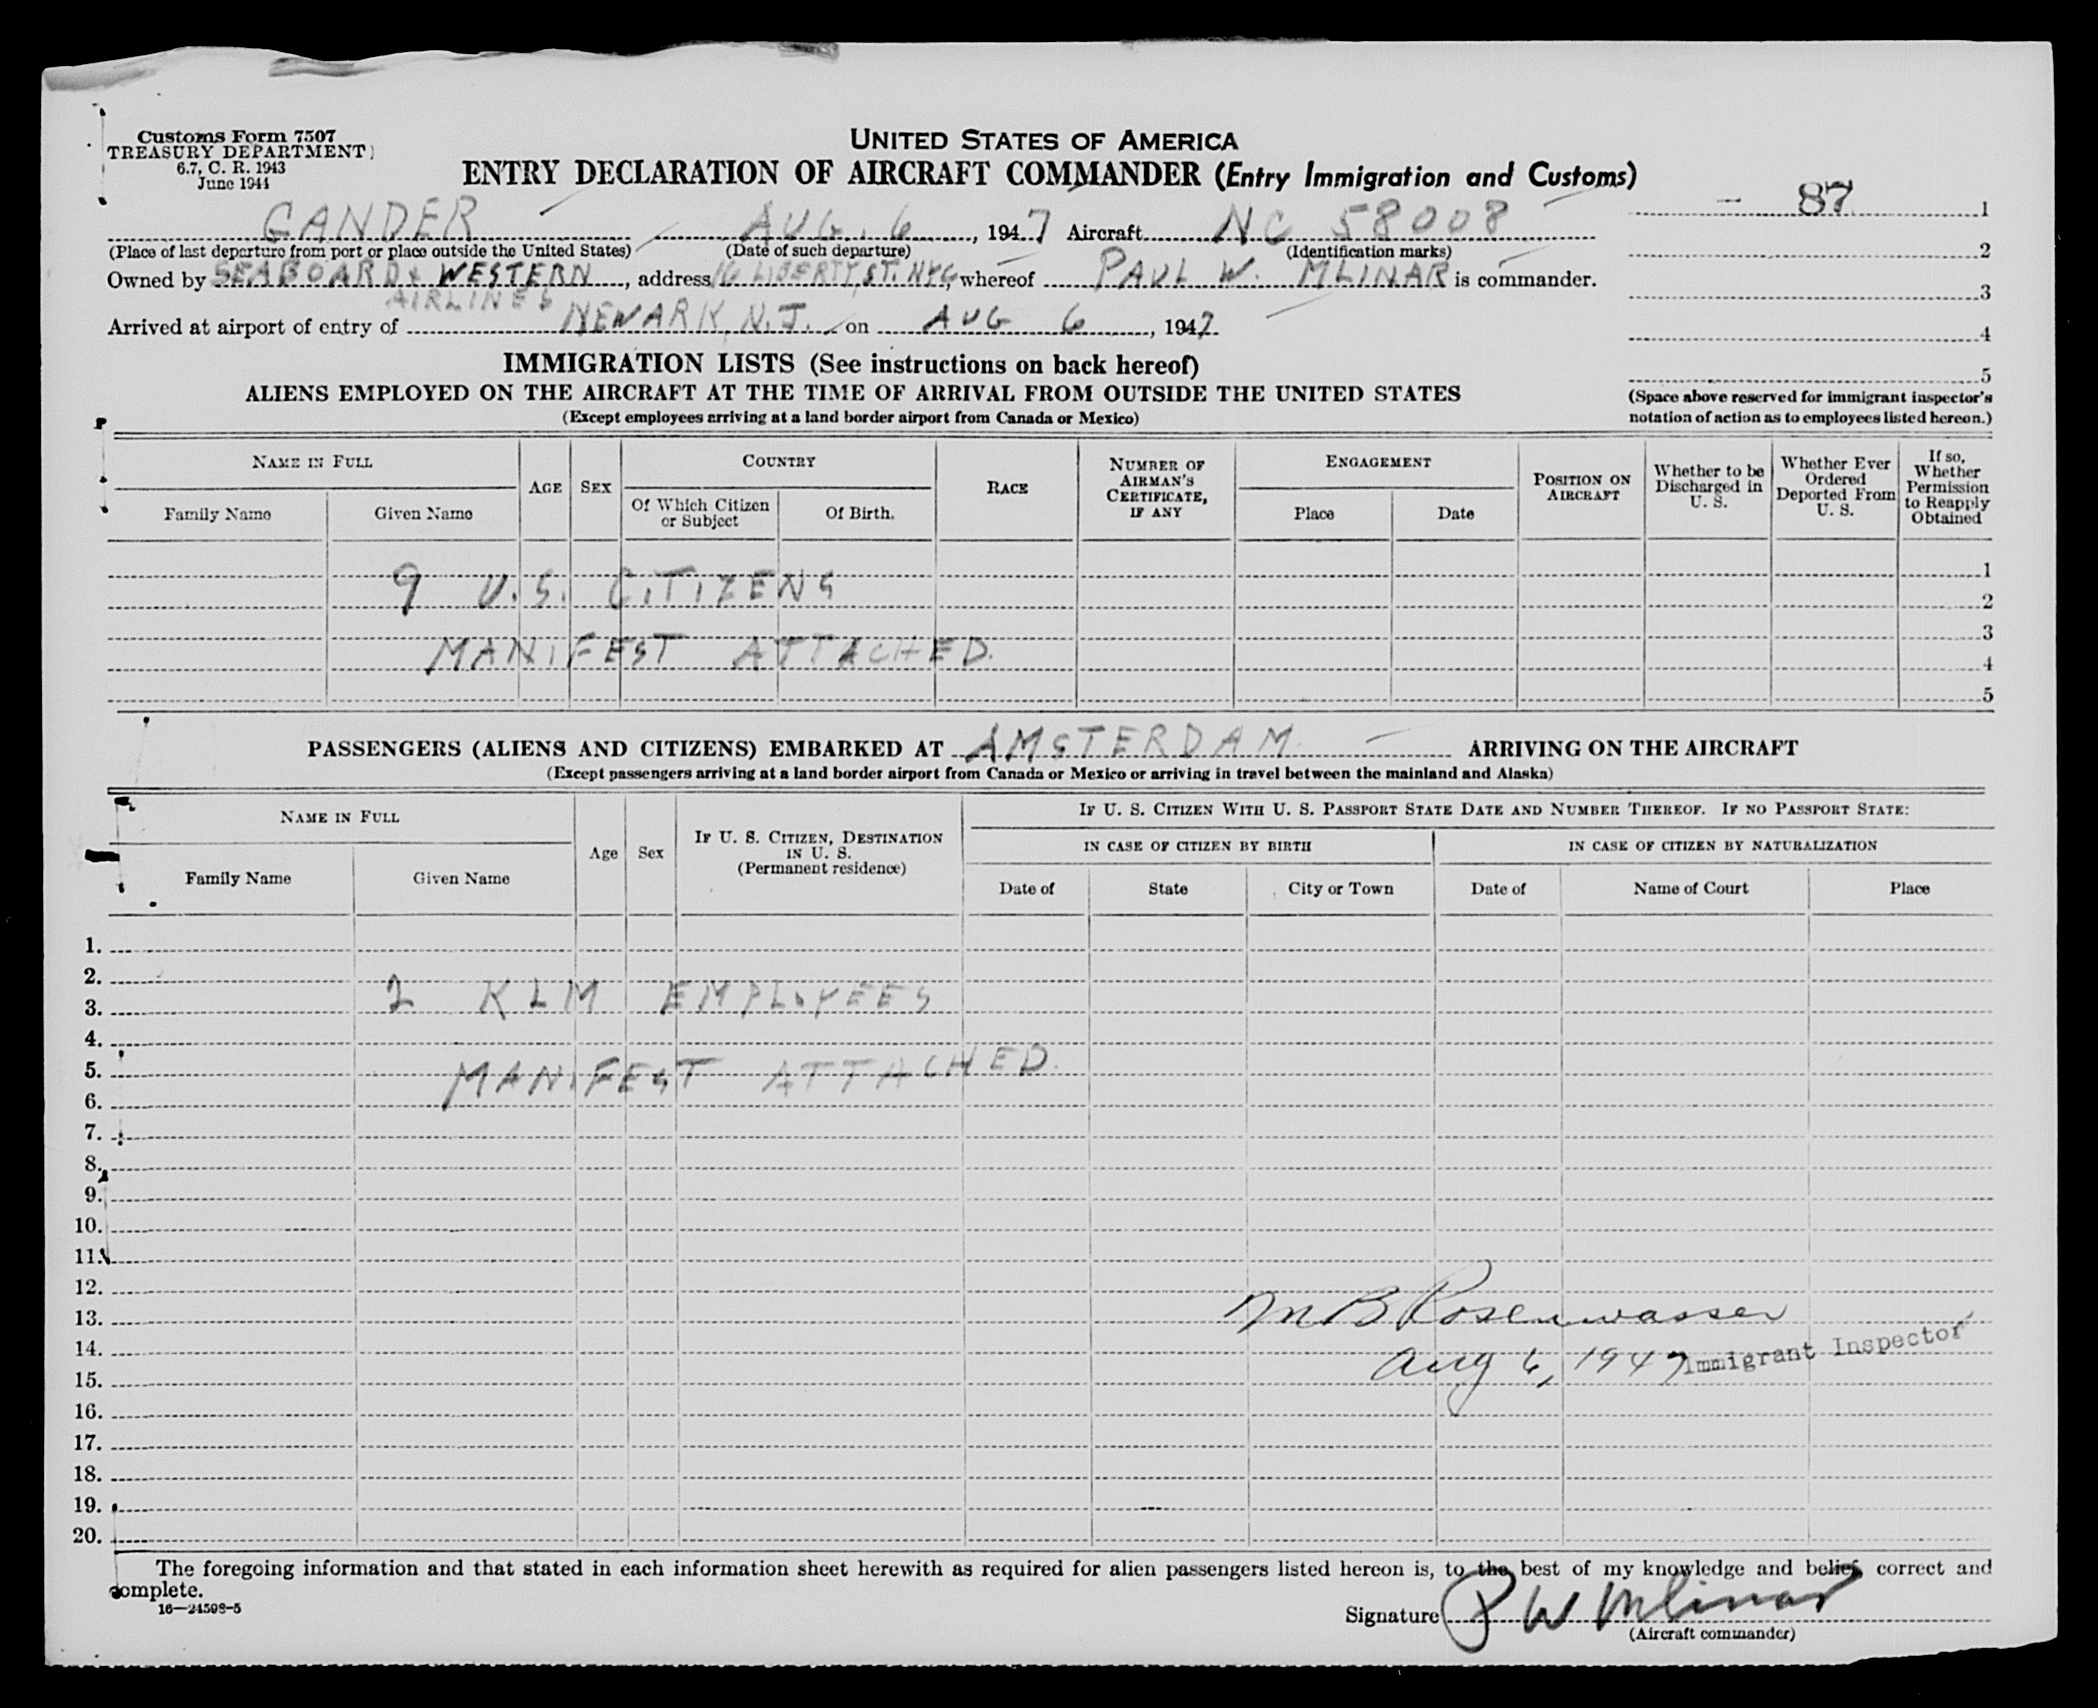 Customs Form 7507
TREASURY DEPARTMENT
6.7, C. R. 1943
June 1944
UNITED STATES OF AMERICA
ENTRY DECLARATION OF AIRCRAFT COMMANDER (Entry Immigration and Customs)
GANDER AUG. 6, 1947 Aircraft NC 58008
(Place of last departure from port or place outside the United States) (Date of such departure) (Identification marks)
Owned by SEABOARD & WESTERN, address 16 LIBERTY ST. NYC, whereof PAUL W. MLINAR is commander.
AIRLINES
Arrived at airport of entry of NEWARK, N.J. on AUG 6, 1947
- 87 1
2
3
4
5
(Space above reserved for immigrant inspector's
notation of action as to employees listed hereon.)
IMMIGRATION LISTS (See instructions on back hereof)
ALIENS EMPLOYED ON THE AIRCRAFT AT THE TIME OF ARRIVAL FROM OUTSIDE THE UNITED STATES
(Except employees arriving at a land border airport from Canada or Mexico)
NAME IN FULL
Family Name Given Name
AGE SEX
COUNTRY
Of Which Citizen or Subject Of Birth.
RACE
NUMBER OF AIRMAN'S CERTIFICATE, IF ANY
ENGAGEMENT
Place Date
POSITION ON AIRCRAFT
Whether to be Discharged in U. S.
Whether Ever Ordered Deported From U. S.
If so, Whether Permission to Reapply Obtained
1
9 U.S. CITIZENS 2
3
MANIFEST ATTACHED. 4
5
PASSENGERS (ALIENS AND CITIZENS) EMBARKED AT AMSTERDAM - ARRIVING ON THE AIRCRAFT
(Except passengers arriving at a land border airport from Canada or Mexico or arriving in travel between the mainland and Alaska)
NAME IN FULL
Family Name Given Name
Age Sex
IF U. S. CITIZEN, DESTINATION IN U. S.
(Permanent residence)
IF U. S. CITIZEN WITH U. S. PASSPORT STATE DATE AND NUMBER THEREOF. IF NO PASSPORT STATE:
IN CASE OF CITIZEN BY BIRTH IN CASE OF CITIZEN BY NATURALIZATION
Date of State City or Town Date of Name of Court Place
1.
2.
3. 2 KLM EMPLOYEES
4.
5.
6. MANIFEST ATTACHED.
7.
8.
9.
10.
11.
12.
13. M B Rosenwasser
14. Immigrant Inspector
15. Aug 6, 1947
16.
17.
18.
19.
20.
The foregoing information and that stated in each information sheet herewith as required for alien passengers listed hereon is, to the best of my knowledge and belief, correct and
complete.
16—24598-5
Signature P W Mlinar
(Aircraft commander)